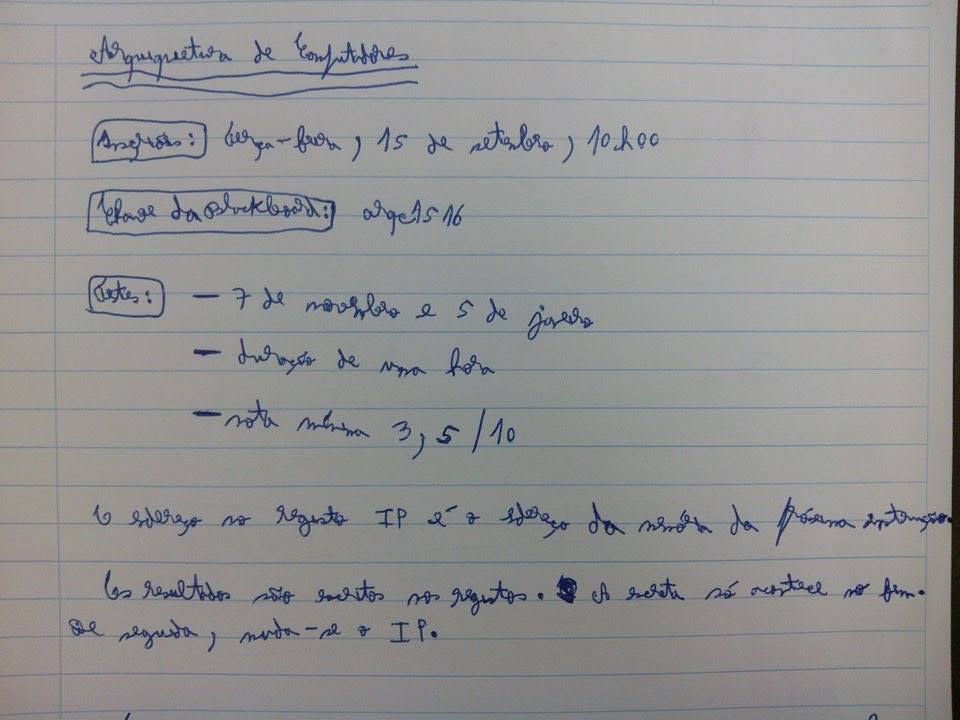 Arquiquetura de Computadores
Inscrições: terça-feira, 15 de setembro, 10h00
Chave da Blackboard: arqc1516
Testes: - 7 de novembro e 5 de janeiro
- duração de uma hora
- nota mínima 3,5/10
O endereço no registo IP é o endereço da memória da próxima instrução.
Os resultados são escritos nos registos. A escrita só acontece no fim.
De seguida, muda-se o IP.